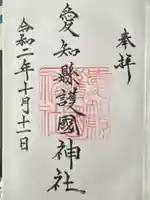 奉拝
愛知縣護國神社
令和二年十月十一日